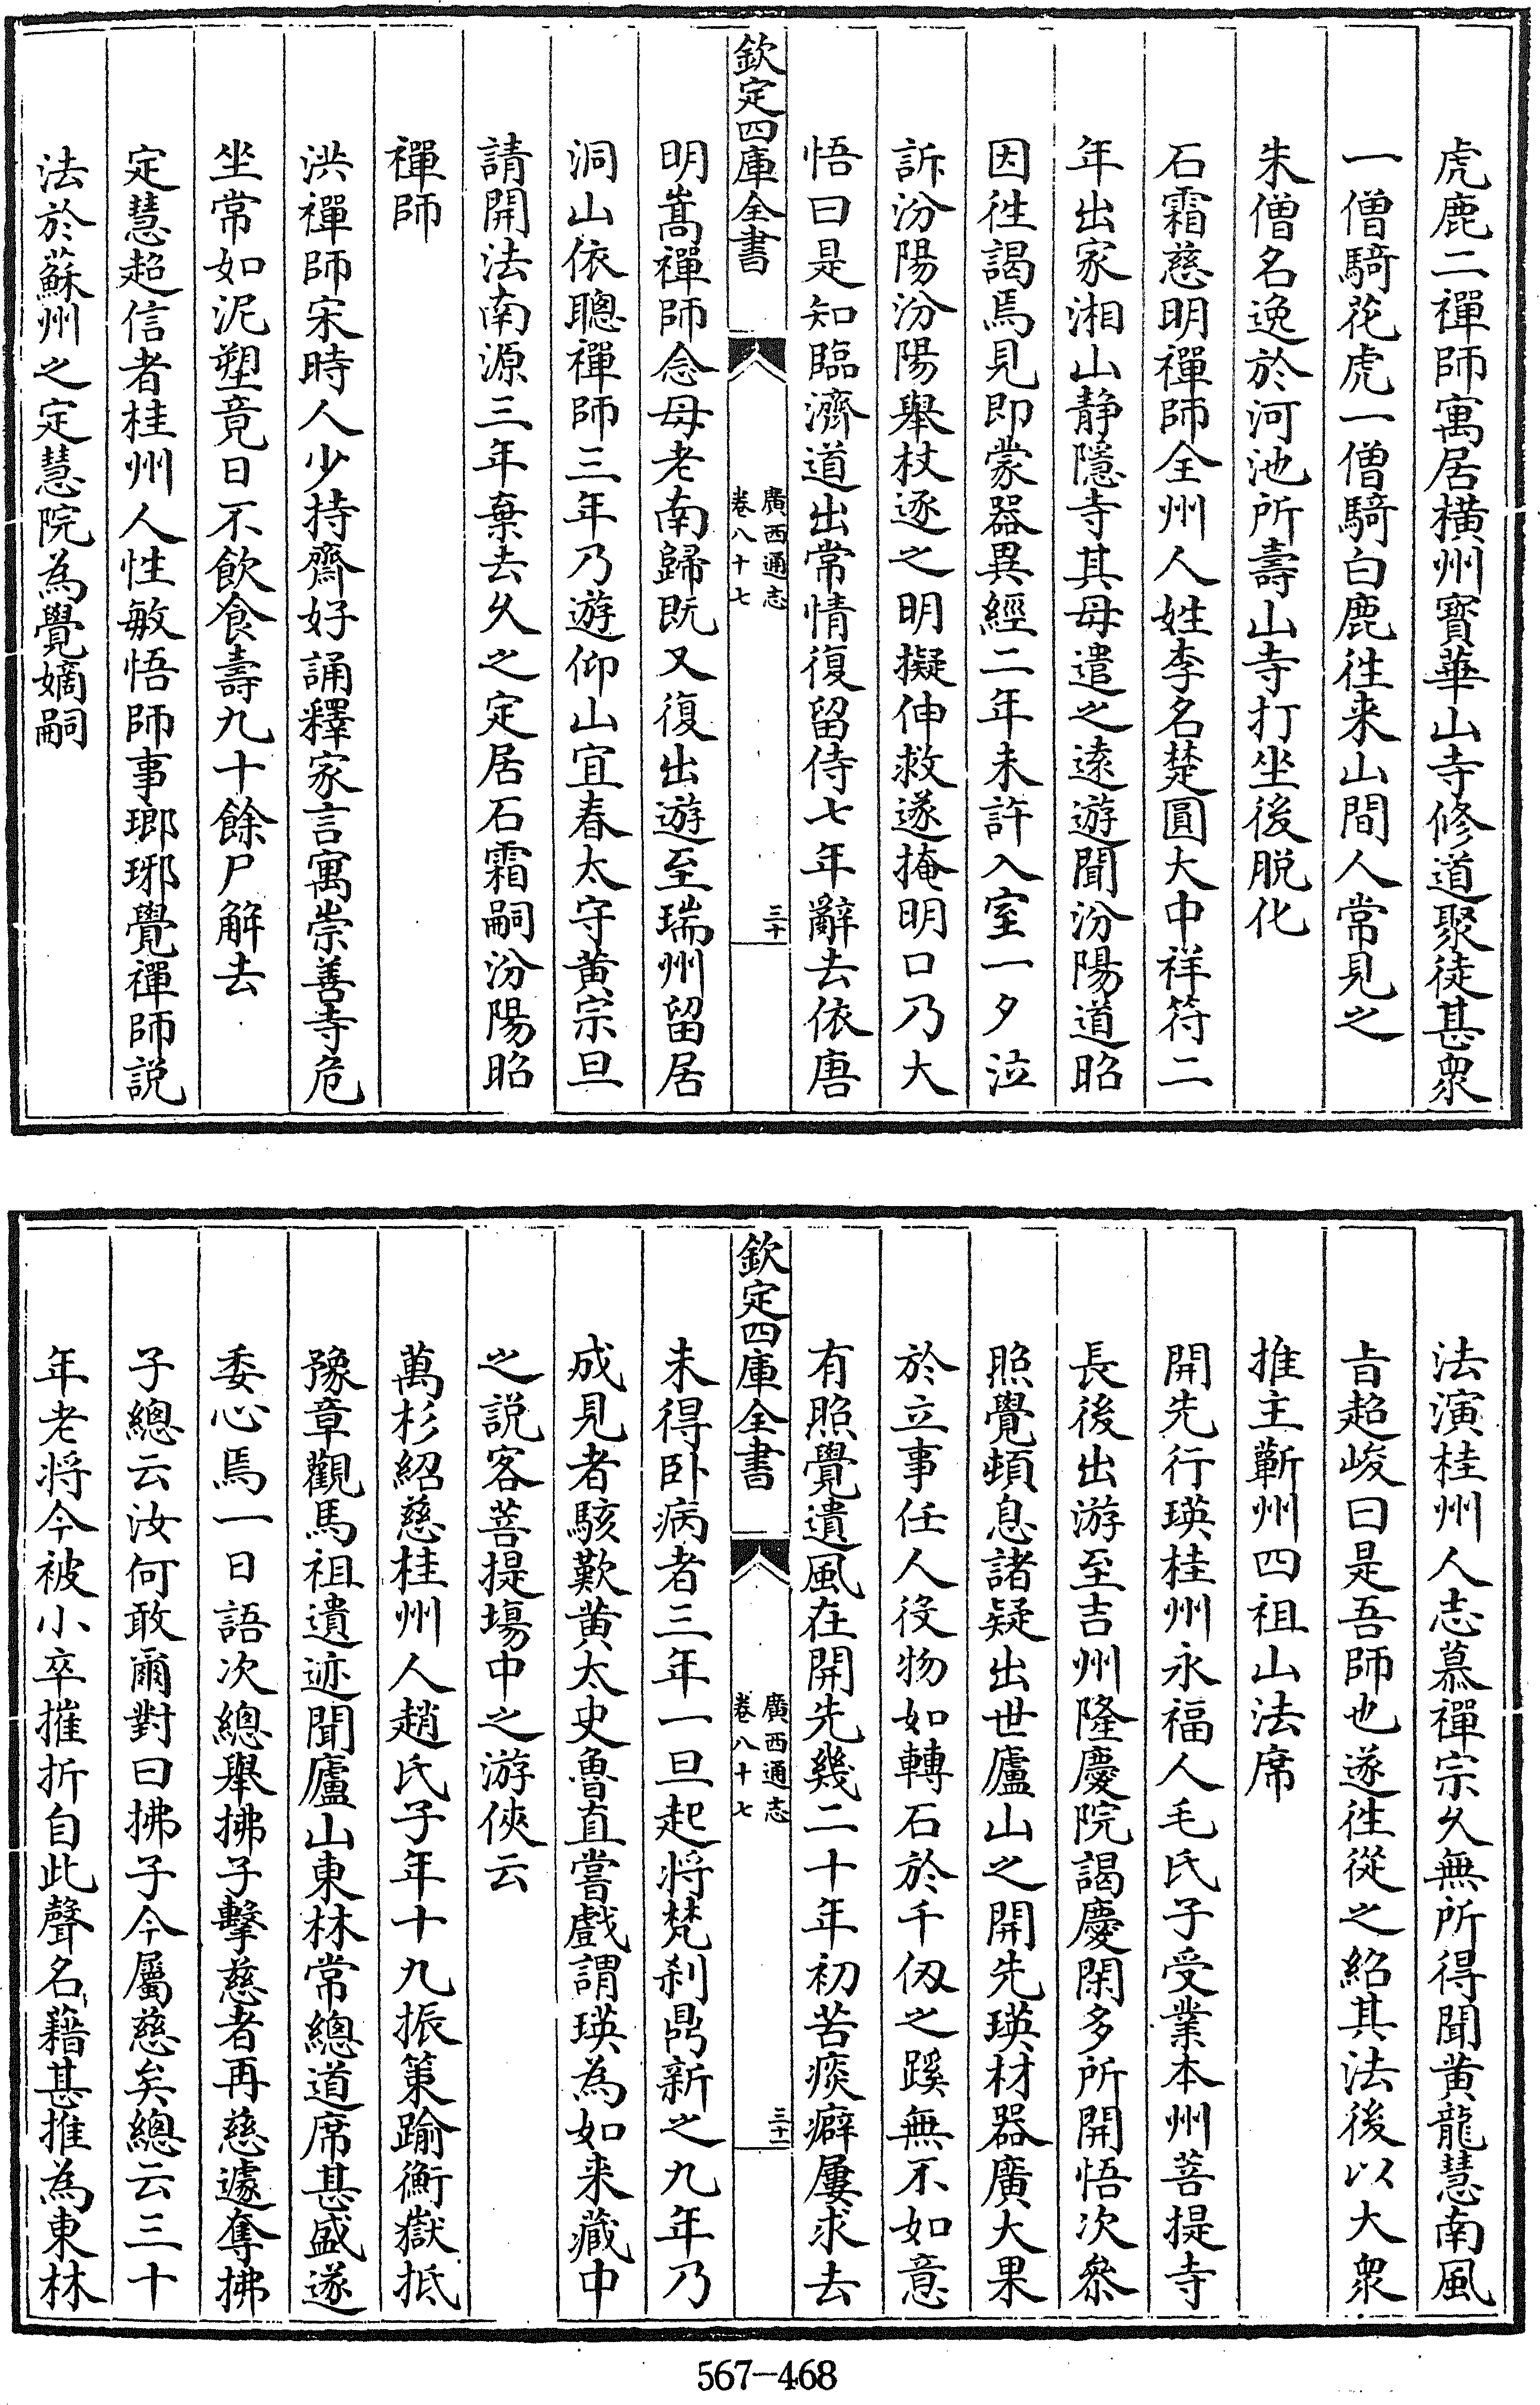 虎鹿二禪師寓居橫州寶華山寺修道聚徒甚衆
一僧騎花虎一僧騎白鹿徃来山間人常見之
朱僧名逸於河池所壽山寺打坐後脱化
石霜慈明禪師全州人姓李名楚圓大中祥符二
年出家湘山静隱寺其母遣之逺遊聞汾陽道昭
因徃謁焉見即蒙器異經二年未許入室一夕泣
訴汾陽汾陽舉杖逐之明擬伸救遂掩明口乃大
悟曰是知臨濟道出常情復留侍七年辭去依唐
欽定四庫全書
廣西通志
卷八十七
三十
明嵩禪師念母老南歸既又復出遊至瑞州留居
洞山依聰禪師三年乃遊仰山宜春太守黄宗旦
請開法南源三年棄去久之定居石霜嗣汾陽昭
禪師
洪禪師宋時人少持齋好誦釋家言寓崇善寺危
坐常如泥塑竟日不飲食壽九十餘尸解去
定慧超信者桂州人性敏悟師事瑯琊覺禪師説
法於蘇州之定慧院為覺嫡嗣
法演桂州人志慕禪宗久無所得聞黄龍慧南風
旨超峻曰是吾師也遂徃從之紹其法後以大衆
推主蘄州四祖山法席
開先行瑛桂州永福人毛氏子受業本州菩提寺
長後出游至吉州隆慶院謁慶閑多所開悟次叅
照覺頓息諸疑出世廬山之開先瑛材器廣大果
於立事任人役物如轉石於千仭之蹊無不如意
有照覺遺風在開先幾二十年初苦痰癖屢求去
欽定四庫全書
廣西通志
卷八十七
三十一
未得卧病者三年一旦起将梵刹鼎新之九年乃
成見者駭歎黄太史魯直嘗戲謂瑛為如来藏中
之説客菩提塲中之游俠云
萬杉紹慈桂州人趙氏子年十九振策踰衡嶽抵
豫章觀馬祖遺迹聞廬山東林常總道席甚盛遂
委心焉一日語次總舉拂子擊慈者再慈遽奪拂
子總云汝何敢爾對曰拂子今屬慈矣總云三十
年老将今被小卒摧折自此聲名藉甚推為東林
567-468